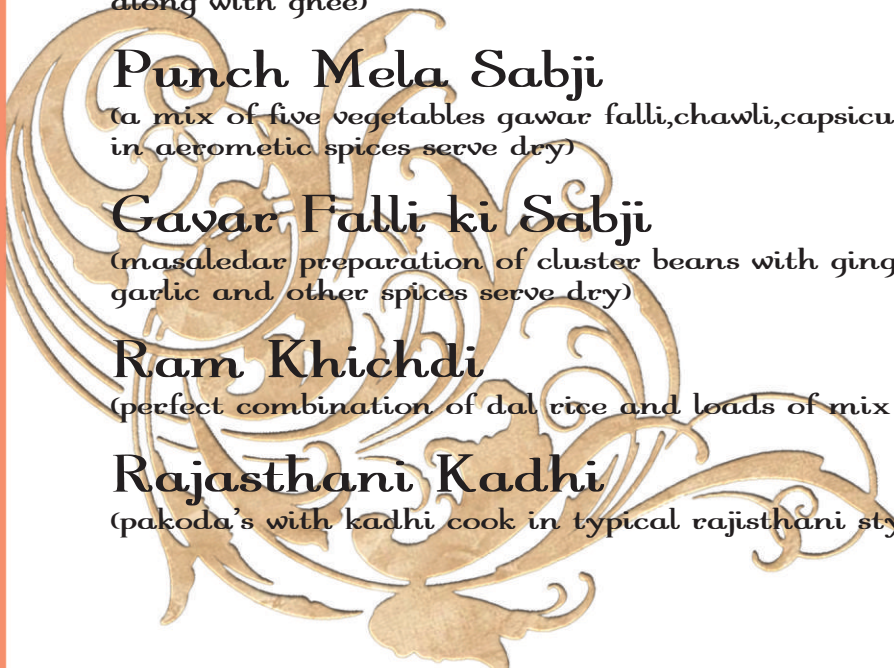 along with ghee)
Punch Mela Sabji
(a mix of five vegetables gawar falli,chawli,capsicu
in aerometic spices serve dry)
Gavar Falli ki Sabji
(masaledar preparation of cluster beans with ging
garlic and other spices serve dry)
Ram Khichdi
(perfect combination of dal rice and loads of mix
Rajasthani Kadhi
(pakoda's with kadhi cook in typical rajisthani sty